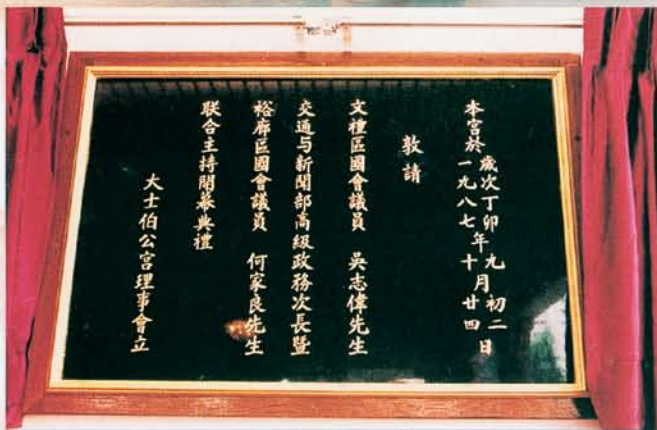 本宮於歲次丁卯年九月初二日
一九八七十廿四
敦請
文禮區國會議員　吳志偉先生
交通与新聞部高級政務次長暨
裕廊區國會議員　何家良先生
聯合主持開幕典禮
大士伯公宮理事會立